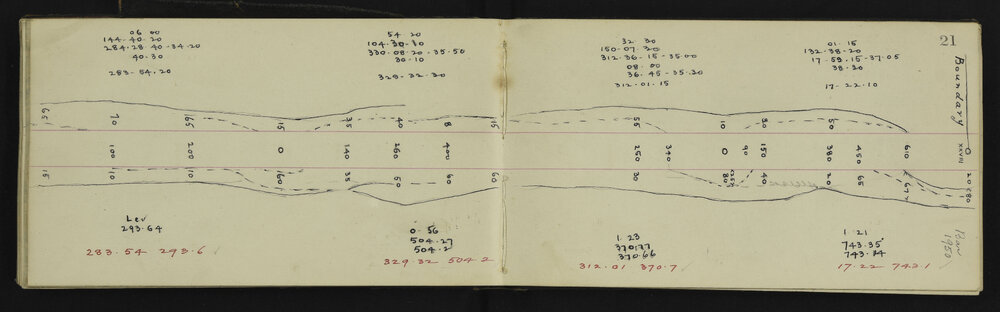 06 00
144-40-20
284-28-40-34-20
40-30
283-54-20
54 20
104-30-10
330-08-20-35-50
30-10
329-32-30
32 30
150-07-20
312-36-15-35-00
08-00
36-45-35-30
312-01-15
01-15
132-38-20
17-59-15-37-05
38-20
17-22-10
21
Boundary
65 70 65 15 35 40 8 15
55 10 30 50
100 200 0 140 260 400
250 340 0 90 150 380 450 610 XXVIII 0
15 10 10 160 35 50 60 60
30 80 40 20 65 20 80
Lev
293-64
283-54 293-6
0-56
504-27
504-2
329-32 504-2
1 23
370-77
370-66
312-01 370-7
1 21
743-35
743-14
17-22 743-1
1950